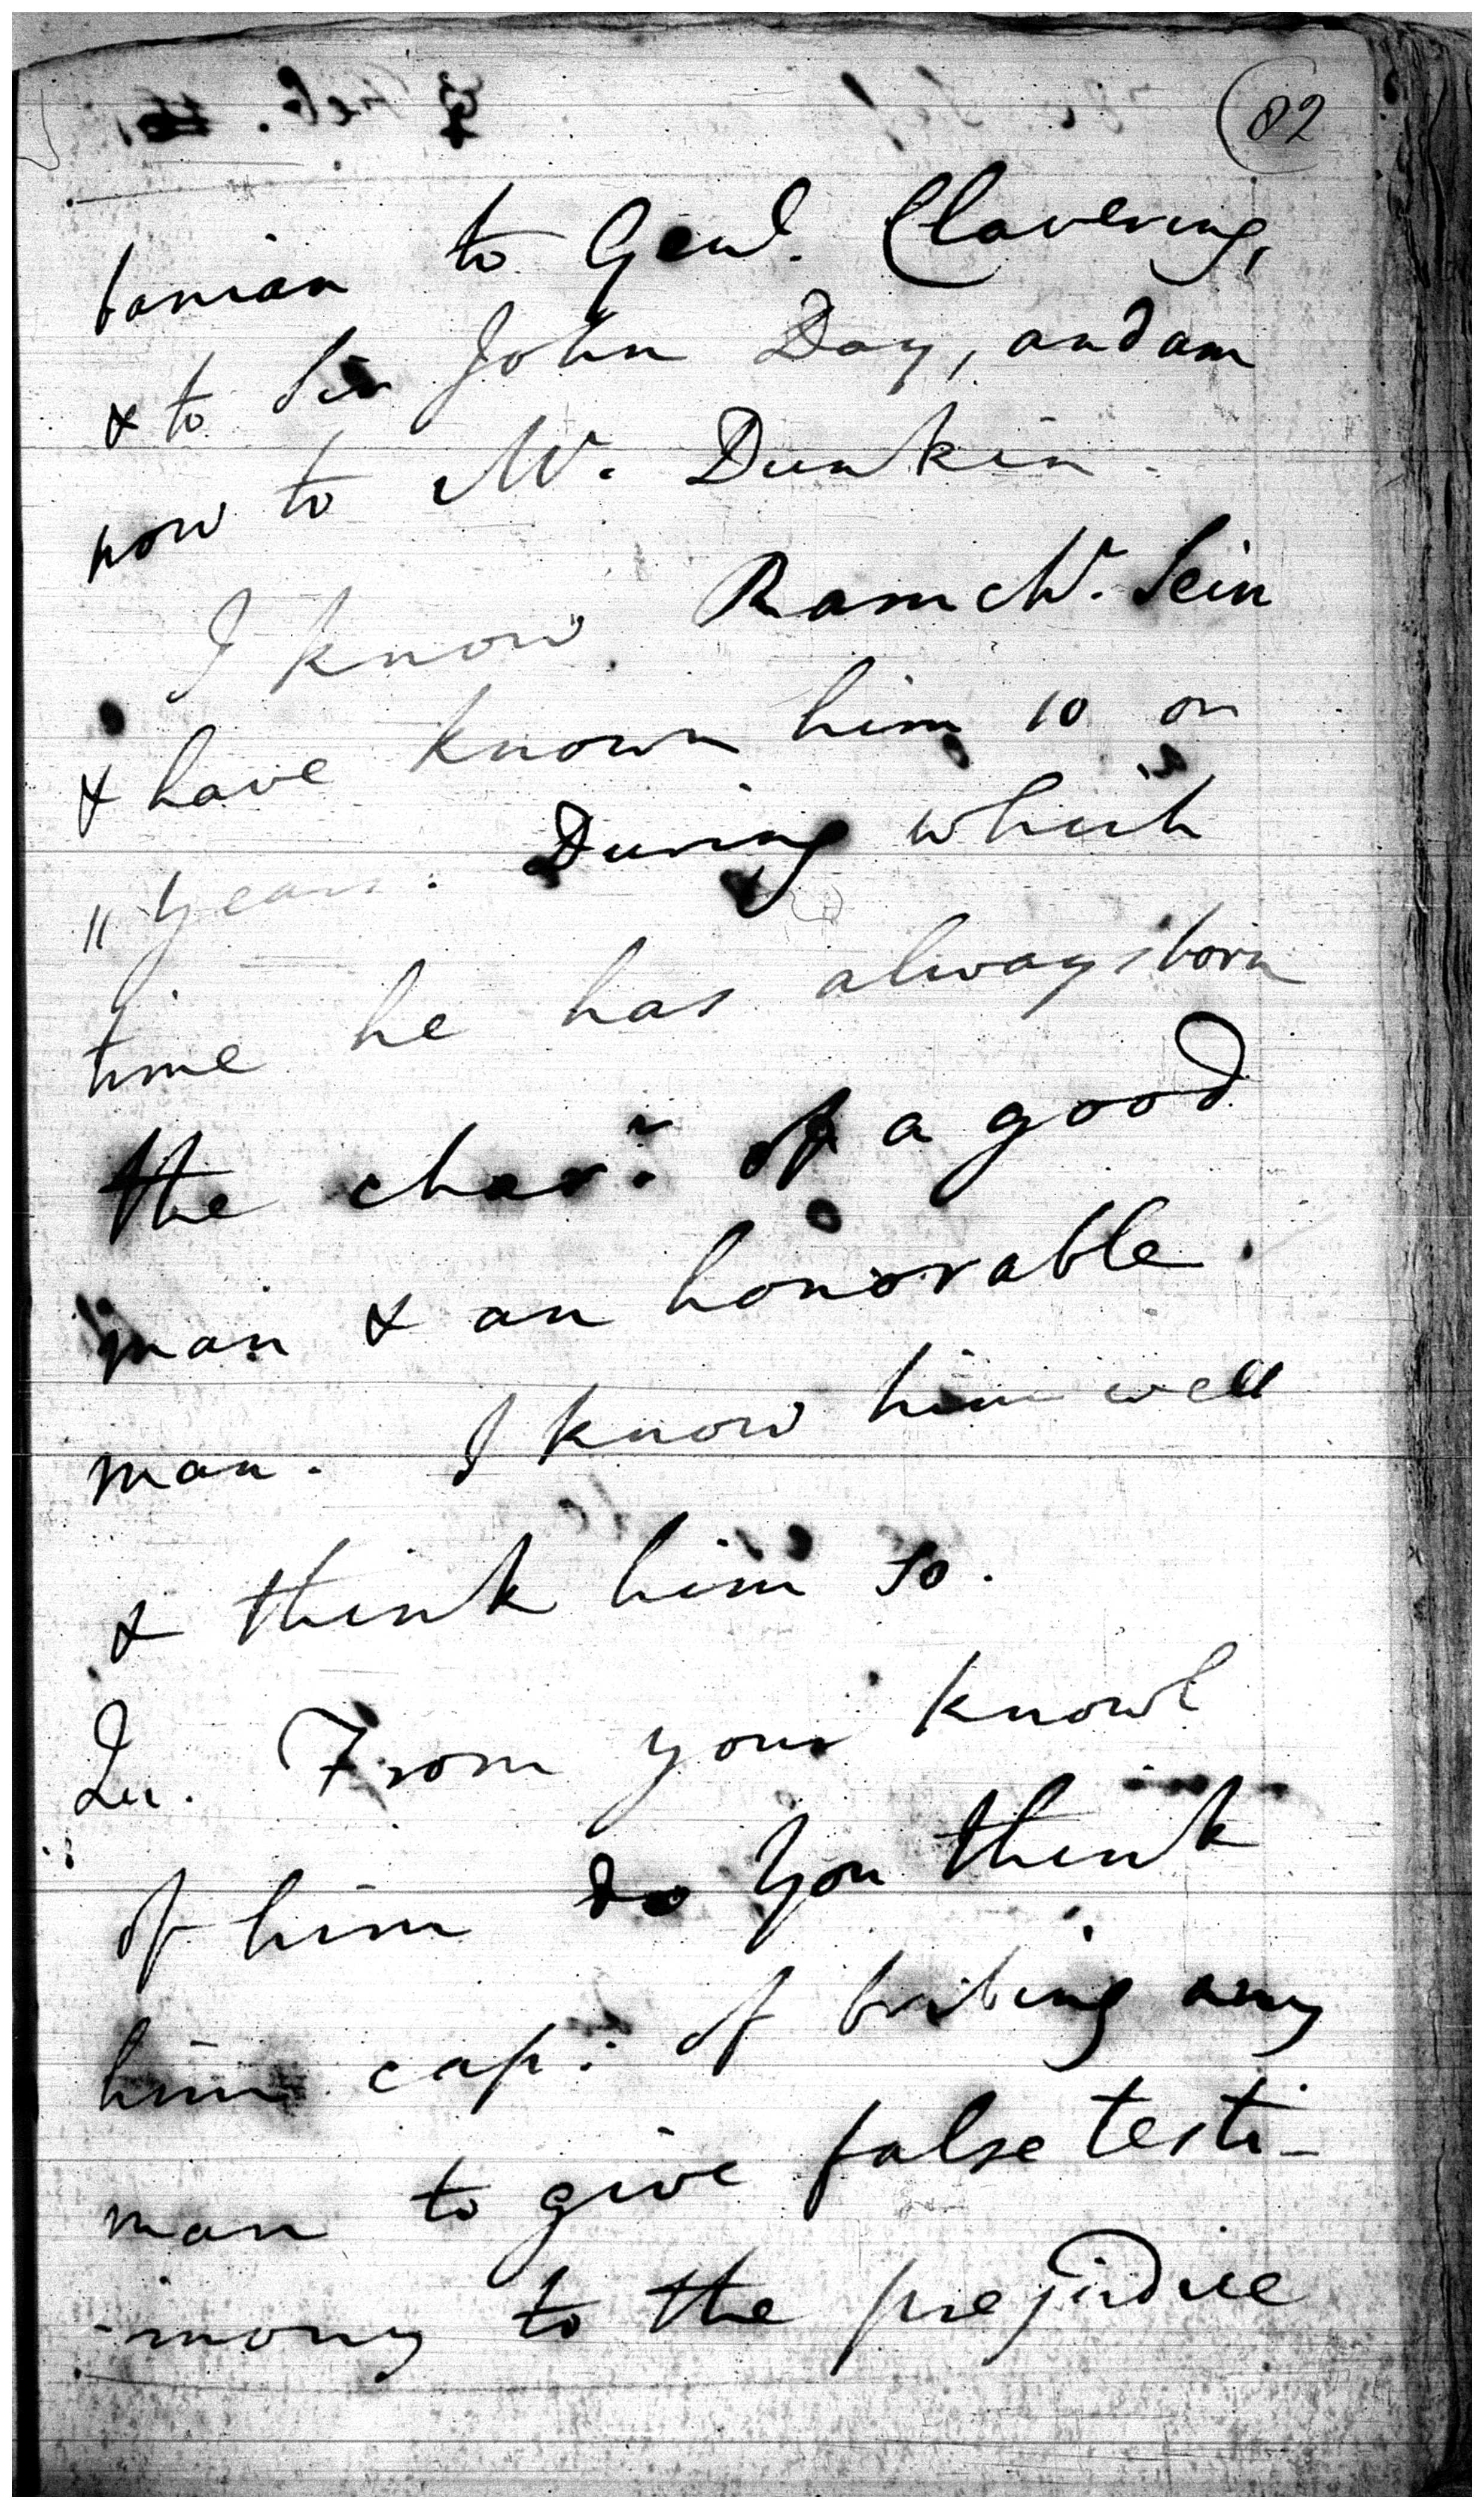 82
banian to Genl. Clavering,
& to Sir John Day, and am
now to Mr. Dunkin.
I know Ram Sein
& have known him 10 or
11 years. During which
time he has always born
the charr. of a good
man & an honorable
man. I know him well
& think him so.
Qu. From your knowl
of him do you think
him cap: of bribing any
man to give false testi-
-mony to the prejudice